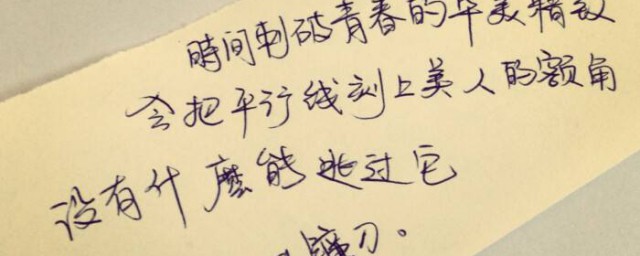 時间刺破青春的华美精致
会把平行线刻上美人的额角
没有什麼能逃过它
镰刀。